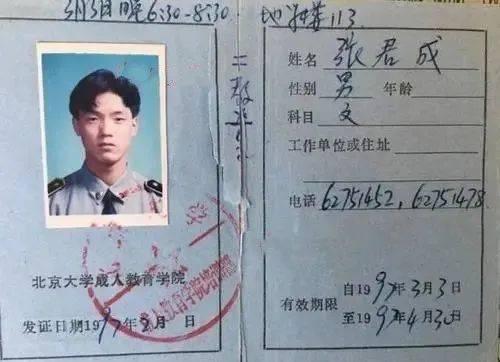 3月3日晚6:30-8:30.
地
113
北京大学成人教育学院
发证日期1997年3月 日
姓名 张君成
性别 男 年龄
科目 文
工作单位或住址
电话 62751452, 62751478
有效期限
自1997年3月3日
至1997年4月30日